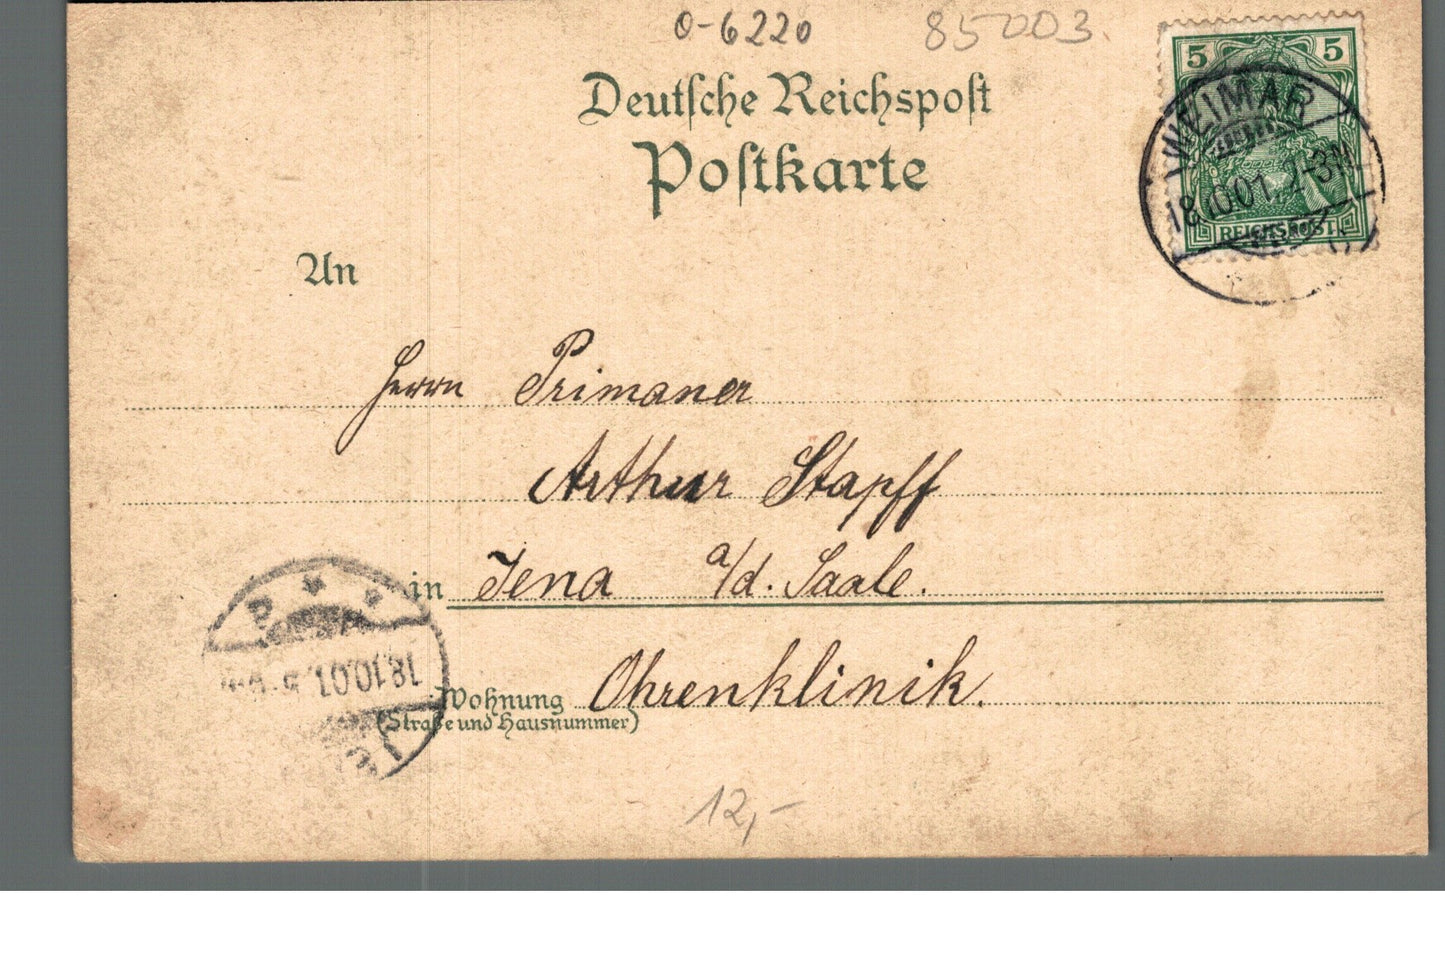 0-6220 85003
5 5
WEIMAR
18.10.01. 1-3N
REICHSPOST
Deutsche Reichspost
Postkarte
An
Herrn Primaner
Arthur Stapff
in Jena a/d. Saale.
18.10.01.
Wohnung Ohrenklinik.
(Straße und Hausnummer)
12,-